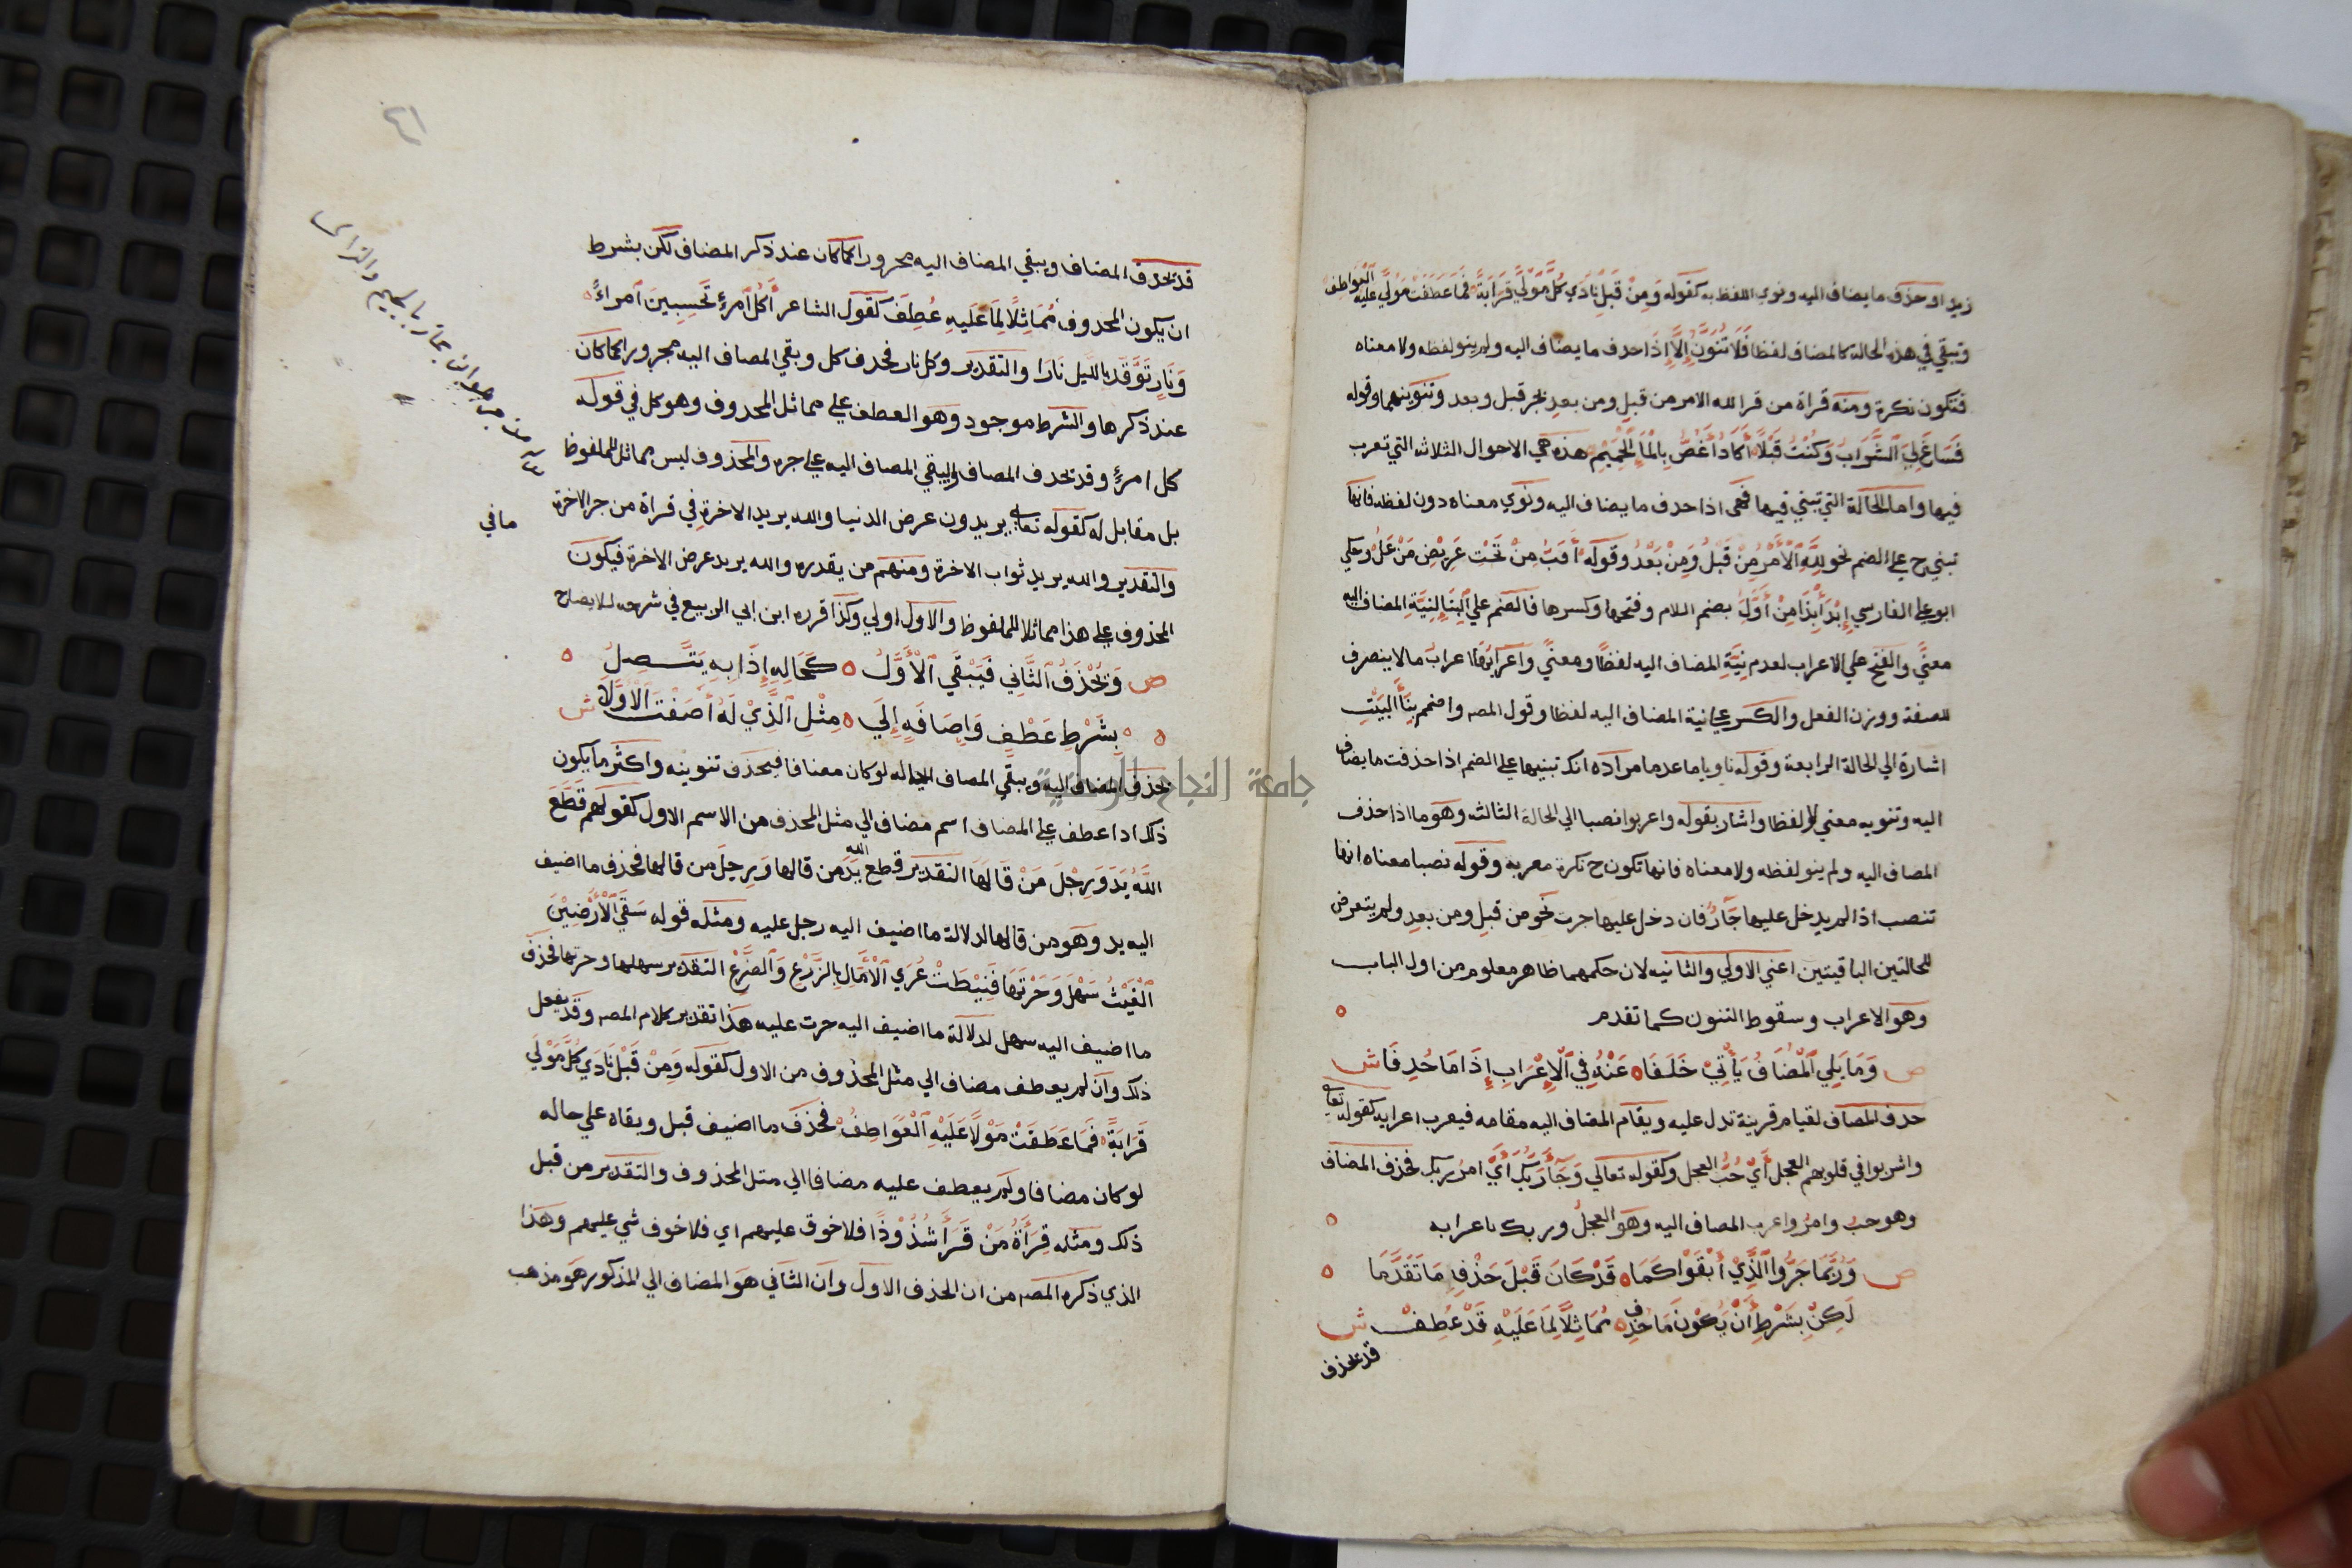 زيد او حذف ما يضاف اليه ونوي اللفظ به كقوله وَمِنْ قَبْلِ نَادَي كُلُّ مَوْلًي قَرَابَةً فَمَا عَطَفَتْ مَوْلًي عليه العَوَاطِف
وتبقي في هذه الحالة كالمضاف لفظا فَلَا تُنَوَّنُ إِلَّا إِذَا حذف ما يضاف اليه ولم ينو لفظه ولا معناه
فتكون نكرة ومنه قراة من قرا لله الامر من قبلٍ ومن بعدٍ بجر قبل وبعد وتنوينهما وقوله
فَسَاغَ لِيَ ٱلشَّرَابُ وَكُنْتُ قَبْلًا أَكَادُ أَغَصُّ بِالْمَاءِ الْحَمِيْمِ هذه هي الاحوال الثلاثة التي تعرب
فيها واما الحالة التي تبني فيها فهي اذا حذف ما يضاف اليه ونوي معناه دون لفظه فانها
تبني ح علي الضم نحو لِلَّهِ ٱلْأَمْرُ مِنْ قَبْلُ وَمِنْ بَعْدُ وقوله أَقَبُّ مِنْ تَحْتُ عَرِيْضٌ مِنْ عَلُ وحكي
ابو علي الفارسي إِبْدَأْ بِذَا مِنْ أَوَّلُ بضم اللام وفتحها وكسرها فالضم علي البناء لنية المضاف اليه
معنًي والفتح علي الاعراب لعدم نِيَّةِ المضاف اليه لفظًا ومعنيً واعرابها اعرابُ ما لا ينصرف
للصفة ووزن الفعل والكسر علي نية المضاف اليه لفظا وقول المصه واضمم بِنَاءً البَيْتِ
اشارة الي الحالة الرابعة وقوله ناويا ما عدما مراده انك تبنيها علي الضم اذا حذفت ما يضاف
اليه وتنويه معني لا لفظا واشار بقوله واعربوا نصبا الي الحالة الثالثه وهو ما اذا حذف
المضاف اليه ولم ينو لفظه ولا معناه فانها تكون ح نكرة معربه وقوله نصبا معناه انها
تنصب اذا لم يدخل عليها جَارٌّ فان دخل عليها جرت نحو من قبلٍ ومن بعدٍ ولم يتعرض
للحالتين الباقيتين اعني الاولي والثانيه لان حكمهما ظاهر معلوم من اول الباب
وهو الاعراب وسقوط التنون كما تقدم
ص وَمَا يَلِي ٱلْمُضَافُ يَأْتِيْ خَلَفَا عَنْهُ فِي ٱلْإِعْرَابِ إِذَا مَا حُذِفَا ش
حذف المضاف لقيام قرينة تدل عليه ويقام المضاف اليه مقامه فيعرب اعرابه كقوله تعالي
واشربوا في قلوبهم العجل أَيْ حُبَّ العجل وكقوله تعالي وَجَآءَ رَبُّكَ أَيْ امرُ ربك فحذف المضاف
وهو حب وامرُ واعرب المضاف اليه وهو العجلُ وربك باعرابه
ص وَرُبَّمَا جَرُّوا ٱلَّذِيْ أَبْقَوْا كَمَا قَدْ كَانَ قَبْلَ حَذْفِ مَا تَقَدَّمَا
لَكِنْ بِشَرْطِ أَنْ يَكُوْنَ مَا حُذِفْ مُمَاثِلًا لِمَا عَلَيْهِ قَدْ عُطِفْ ش
قد يحذف
٤١
قد يحذف المضاف ويبقي المضاف اليه مجرورا كما كان عند ذكر المضاف لكن بشرط
ان يكون المحذوف مُمَاثِلًا لِمَا عَلَيهِ عُطِفَ كقول الشاعر أَكُلَّ ٱمْرِءٍ تَحْسِبِينَ ٱمراءً
وَنَارٍ تَوَقَّدُ بالليل نَارَا والتقدير وكل نار فحذف كل وبقي المضاف اليه مجرورا كما كان
عند ذكرها والشرط موجود وهو العطف علي مماثل المحذوف وهو كل في قوله
كل امرءٍ وقد يحذف المضاف ويبقي المضاف اليه علي جره والمحذوف ليس مماثلا للملفوظ
بل مقابل له كقوله تعالي يريدون عرض الدنيا والله يريد الاخرةِ في قراة من جر الاخرة
والتقدير والله يريد ثواب الاخرة ومنهم من يقدره والله يريد عرض الاخرة فيكون
المحذوف علي هذا مماثلا للملفوظ والاول اولي وكذا قرره ابن ابي الربيع في شرحه للايضاح
ص وَيُحْذَفُ ٱلثَّانِي فَيَبْقَي ٱلْأَوَّلُ كَحَالِهِ إِذَا بِهِ يَتَّصِلُ
بِشَرْطِ عَطْفٍ وَإِضَافَةٍ إِلَي مِثْلِ ٱلَّذِيْ لَهُ أَضَفْتَ ٱلْأَوَّلَا ش
يحذف المضاف اليه ويبقي المضاف كحاله لو كان مضافا فيحذف تنوينه واكثر ما يكون
ذلك اذا عطف علي المضاف اسم مضاف الي مثل المحذف من الاسم الاول كقولهم قَطَعَ
اللَّهُ يَدَ وَرِجْلَ مَنْ قَالَهَا التقدير قطع الله يَدَ من قالها وَرِجلَ من قالها فحذف ما اضيف
اليه يد وهو من قالها لدلالة ما اضيف اليه رجل عليه ومثله قوله سَقَي ٱلْأَرَضِيْنَ
ٱلْغَيْثُ سَهْلَ وَحَزْنَهَا فَنِيْطَتْ عُرَي ٱلْأَمَالِ بِالزَّرْعِ وَالضَّرْعِ التقدير سهلها وحزنها فحذف
ما اضيف اليه سهل لدلالة ما اضيف اليه حزن عليه هذا تقدير كلام المصه وقد يفعل
ذلك وان لم يعطف مضاف الي مثل المحذوف من الاول كقوله وَمِنْ قَبْلِ نَادَي كُلُّ مَوْلَي
قَرَابَةً فَمَا عَطَفَتْ مَوْلًا عَلَيْهِ ٱلْعَوَاطِفُ فحذفَ ما اضيف قبل وبقاه علي حاله
لو كان مضافا ولم يعطف عليه مضافا الي مثل المحذوف والتقدير من قبل
ذلك ومثله قِرَأَةُ مَنْ قَرَأَ شُذُوْذًا فلا خوفَ عليهم اي فلا خوف شي عليهم وهذا
الذي ذكره المصه من ان الحذف الاول وان الثاني هو المضاف الي المذكور هو مذهب
ما في
جامعة النجاح الوطنية